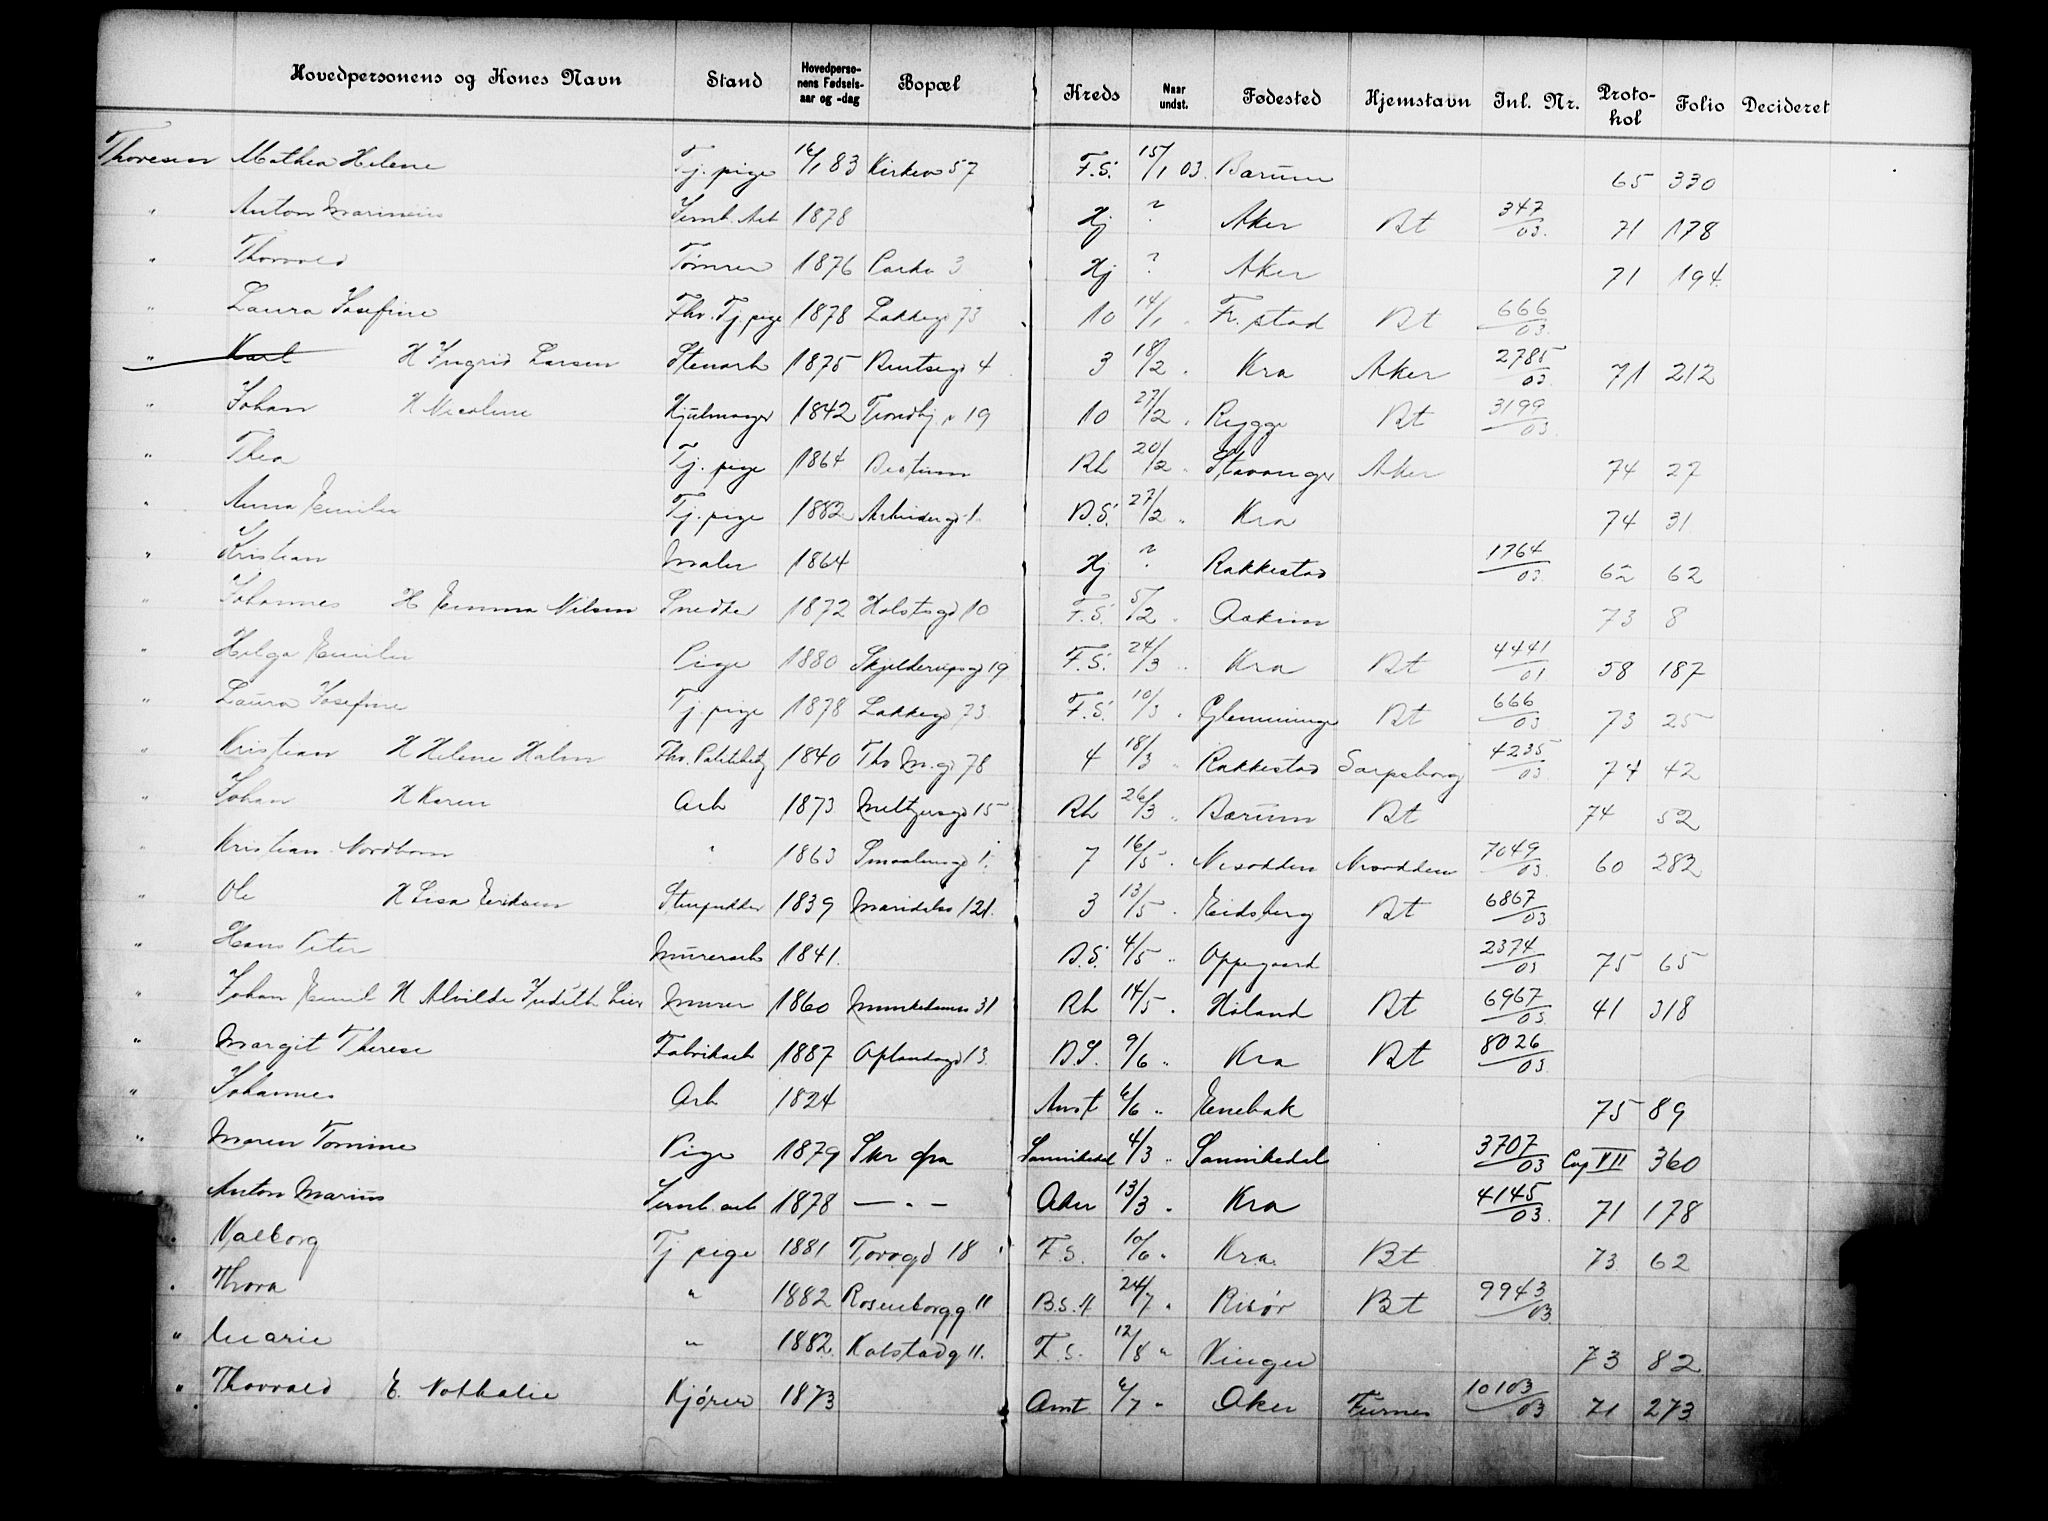 Hovedpersonens og Kones Navn Stand Hovedperso-nens Fødsels-aar og -dag Bopæl Kreds Naar undst. Fødested Hjemstavn Inl. Nr. Proto-kol Folio Decideret
Thoresen Mathea Helene Tj. pige 16/1 83 Kirkev 57 F.S. 15/1 03. Bærum 65 330
" Anton Marinius Jernb. Arb 1878 Hj ? Aker Bt 347/03. 71 178
" Thorvald Tømrer 1876 Parkv 3 Hj ? Aker 71 194.
" Laura Josefine Fhv. Tj. pige 1878 Lakkegd 73 10 14/1 " Fr. stad Bt 666/03.
" Karl H Ingrid Larsen Stenarb 1875 Bentsegd 4 3 18/2 " Kra Aker 2785/03. 71 212
" Johan H Nicoline Hjulmager 1842 Trondhj v 19 10 27/2 " Rygge Bt 3199/03.
" Thea Tj. pige 1864 Bestum Rh 20/2 " Stavanger Aker 74 27
" Anna Emilie Tj. pige 1882 Arbeidergd 1 B.S. 27/2 " Kra 74 31
" Kristian Maler 1864 Hj ? Rakkestad 1764/03. 62 62
" Johannes H Emma Nilsen Snedker 1872 Holstsgd 10 F.S. 5/2 " Askim 73 8
" Helga Emilie Pige 1880 Skjelderupsgd 19 F.S. 24/3 " Kra Bt 4441/01 58 187
" Laura Josefine Tj. pige 1878 Lakkegd 73 F.S. 10/3 " Glemminge Bt 666/03 73 25
" Kristian H Helene Holm Fhv. Politibetj 1840 Thv M. gd 78 4 18/3 " Rakkestad Sarpsborg 4235/03 74 42
" Johan H Karen Arb 1873 Meltzersgd 15 Rh 26/3 " Bærum Bt 74 52
" Kristian Nordbom " 1863 Smaalensgd 1. 7 16/5 " Nesodden Nesodden 7049/03. 60 282
" Ole H Lisa Eriksen Stenpukker 1839 Maridalsv 121. 3 13/5 " Eidsberg Bt 6867/03
" Hans Peter Murerarb 1841. B.S. 4/5 " Oppegaard 2374/03 75 65
" Johan Emil H Alvilde Judith Lier Murer 1860 Munkedamsv 31 Rh 14/5 " Høland Bt 6967/03. 41 318
" Margit Therese Fabrikarb 1887 Oplandsgd 13. B.S. 9/6 " Kra Bt 8026/03.
" Johannes Arb 1824 Amt 6/6 " Enebak 75 89
" Maren Tomine Pige 1879 Skr fra Sannikedal 4/3 " Sannikedal 3707/03 Cop VII 360
" Anton Marius Jernb. arb 1878 — " — Aker 13/3 " Kra 4145/03. 71 178
" Valborg Tj pige 1881 Torvgd 18 F.S. 10/6 " Kra Bt 73 62
" Thora " 1882 Rosenborgg 11 B.S. A 24/7 " Risør Bt 9943/03.
" Marie " 1882. Kalstadg 11. F.S. 12/8 " Vinger 73 82
" Thorvald E. Nathalie Kjører 1873 Amt 6/7 " Aker Furnes 10103/03 71 273